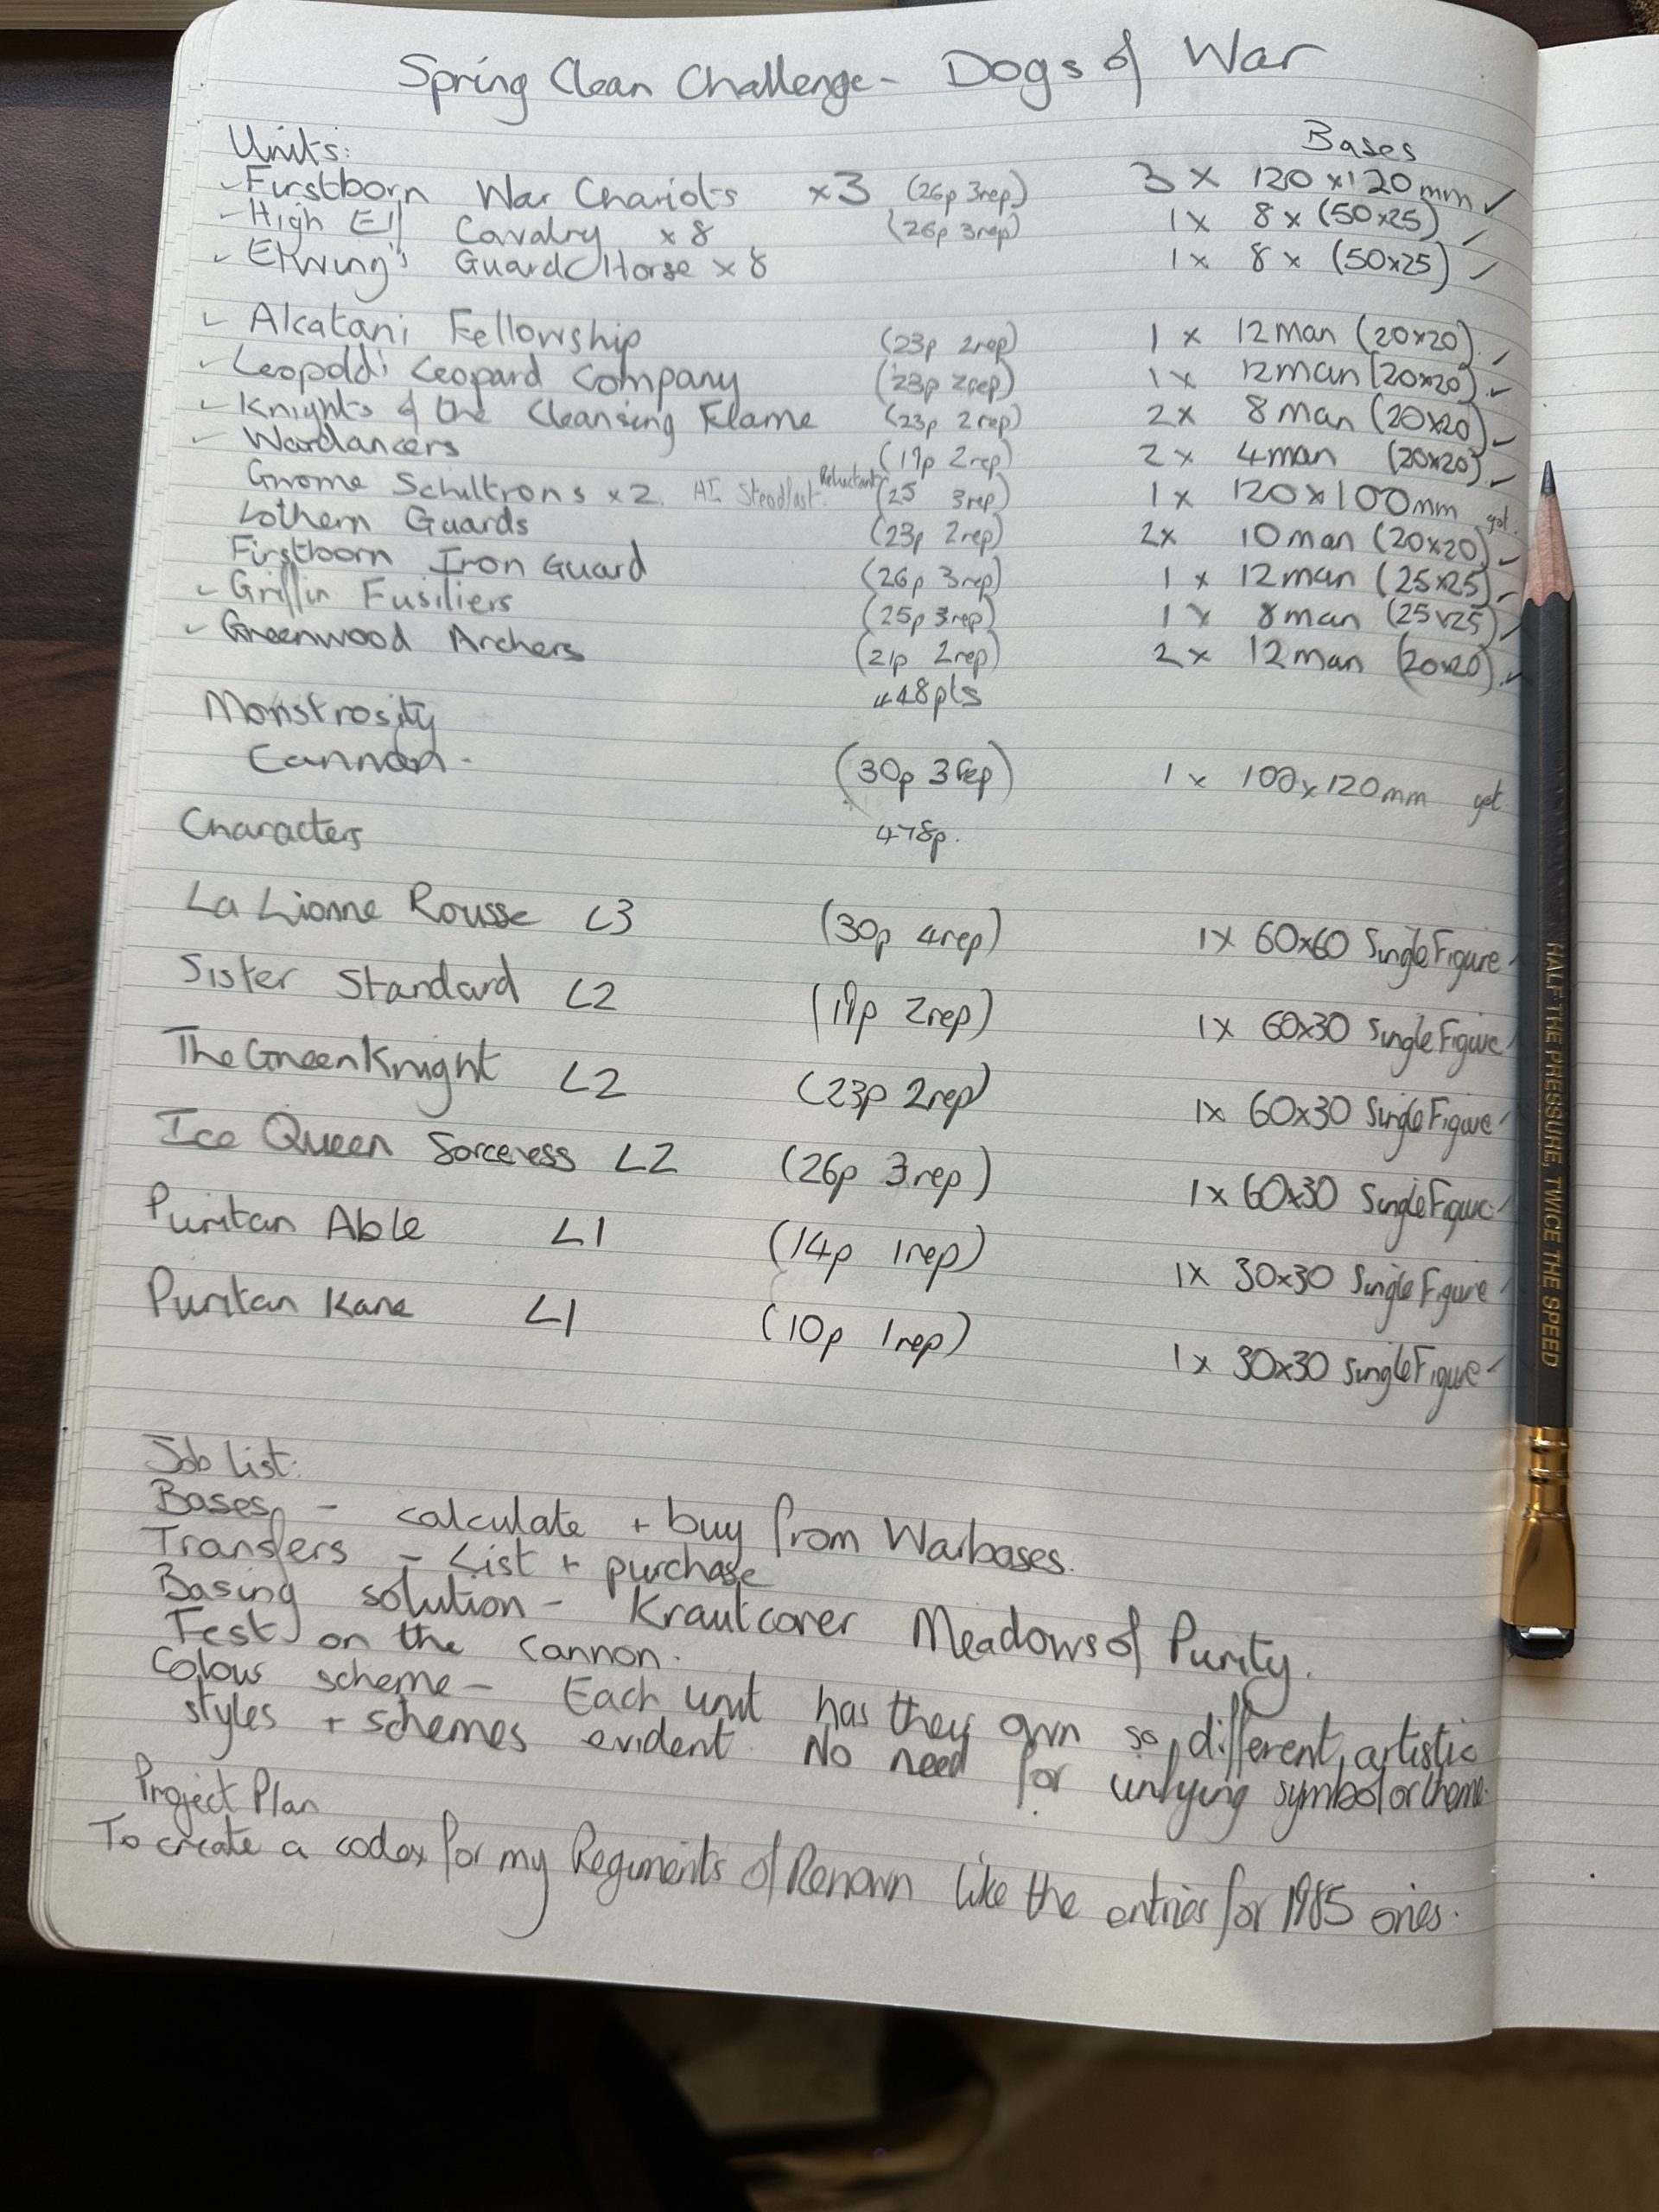 Spring Clean Challenge - Dogs of War
Units: Bases
✓ Firstborn War Chariots x3 (26p 3rep) 3 x 120 x 120mm ✓
✓ High Elf Cavalry x 8 (26p 3rep) 1x 8 x (50x25) ✓
✓ Guard Horse x 8 1x 8 x (50x25) ✓
✓ Alcatani Fellowship (23p 2rep) 1 x 12 man (20x20) ✓
✓ Leopold's Leopard Company (23p 2rep) 1x 12 man (20x20) ✓
✓ Knights of the Cleansing Flame (23p 2rep) 2x 8 man (20x20) ✓
✓ Wardancers (19p 2rep) 2x 4 man (20x20) ✓
Gnome Schiltrons x 2. Steadfast. Reluctant (25 3rep) 1x 120 x 100mm got.
Lothern Guards (23p 2rep) 2x 10 man (20x20) ✓
Firstborn Iron Guard (26p 3rep) 1 x 12 man (25x25) ✓
✓ Griffin Fusiliers (25p 3rep) 1 x 8 man (25x25) ✓
✓ Greenwood Archers (21p 2rep) 2x 12 man (20x20) ✓
448pts
Monstrosity
Cannon. (30p 3rep) 1 x 100x120mm got.
Characters 478p.
La Lionne Rousse L3 (30p 4rep) 1x 60x60 Single Figure ✓
Sister Standard L2 (19p 2rep) 1x 60x30 Single Figure ✓
The Green Knight L2 (23p 2rep) 1x 60x30 Single Figure ✓
Ice Queen Sorceress L2 (26p 3rep) 1x 60x30 Single Figure ✓
Puritan Able L1 (14p 1rep) 1x 30x30 Single Figure ✓
Puritan Kane L1 (10p 1rep) 1x 30x30 Single Figure ✓
Job List:
Bases - calculate + buy from Warbases.
Transfers - List + purchase
Basing solution - Krautcover Meadows of Purity.
Test on the cannon.
Colour scheme - Each unit has they own so different artistic
styles + schemes evident. No need for unifying symbol or theme.
Project Plan
To create a codex for my Regiments of Renown like the entries for 1985 ones.
HALF THE PRESSURE, TWICE THE SPEED